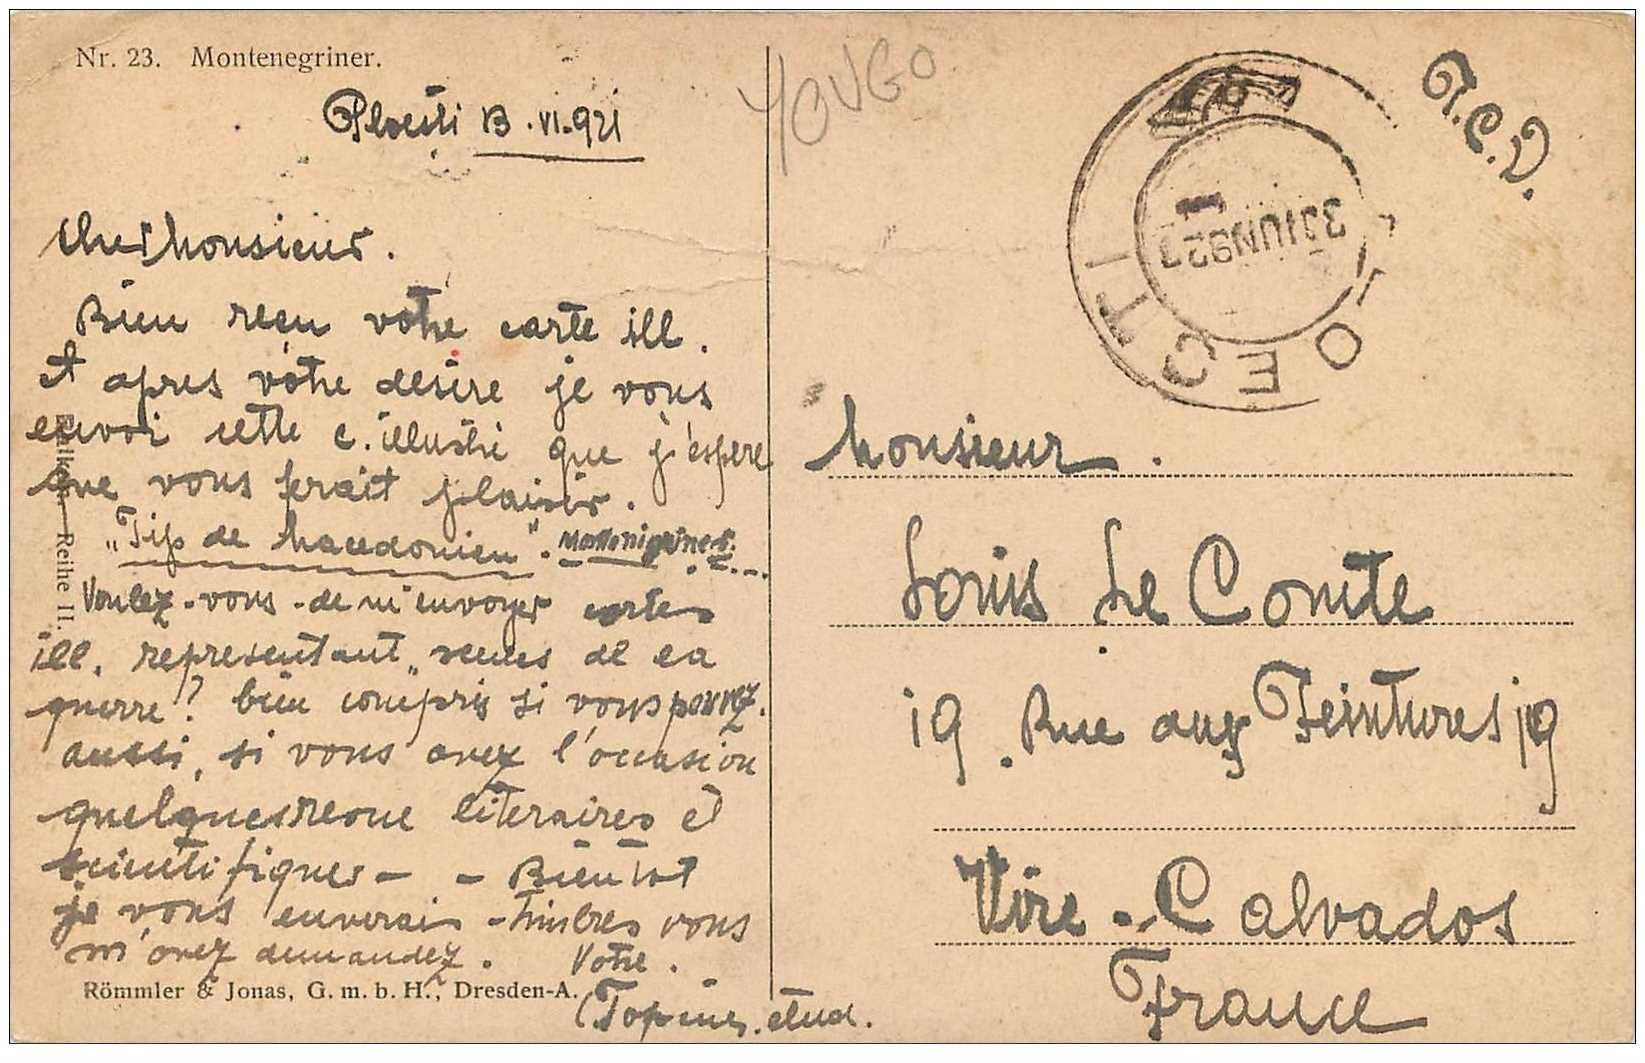 Nr. 23. Montenegriner.
Ploesti 13.VI.921
Cher Monsieur.
Bien reçu votre carte ill.
et apres votre desire je vous
envoi cette c. illustré que j'espere
que vous ferait plaisir.
„Tip de Macedonien". Montenigriner.
Voulez-vous-de m'envoyer cartes
ill. representant „scenes de la
guerre"? bien compris si vous pouvez.
aussi, si vous avez l'occasion
quelques revue literaires et
scientifiques - - Bientot
je vous enverais - timbres vous
m'avez demandez. Votre.
etud.
Römmler & Jonas, G. m. b. H., Dresden-A.
Reihe II.
T.C.V.
PLOESTI
3 JUN 92
Monsieur.
Louis Le Comte
19. Rue aux Teintures 19
Vire - Calvados
France